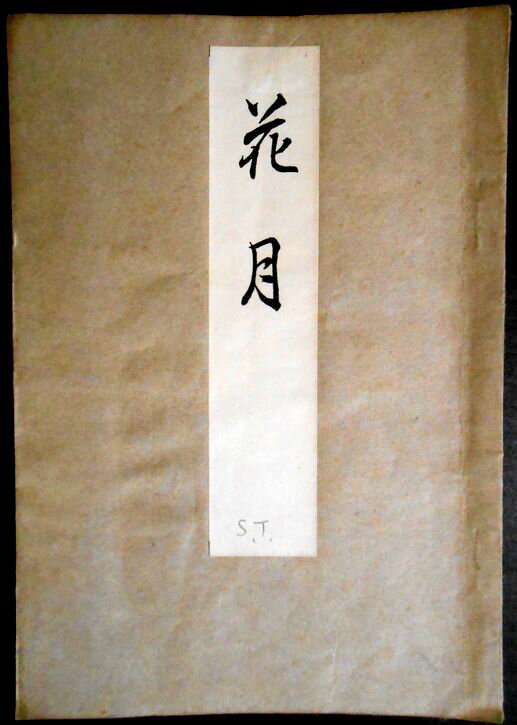 花月
S.T.